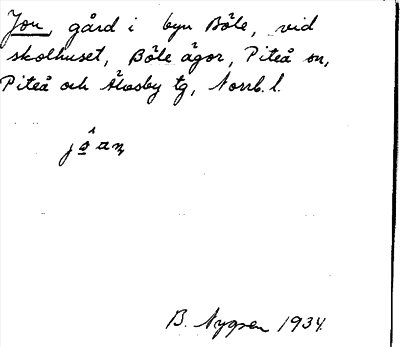 Jon, gård i byn Böle, vid
skolhuset, Böle ägor, Piteå sn,
Piteå och Älvsby tg, Norrb. l.
B. Nygren 1934.